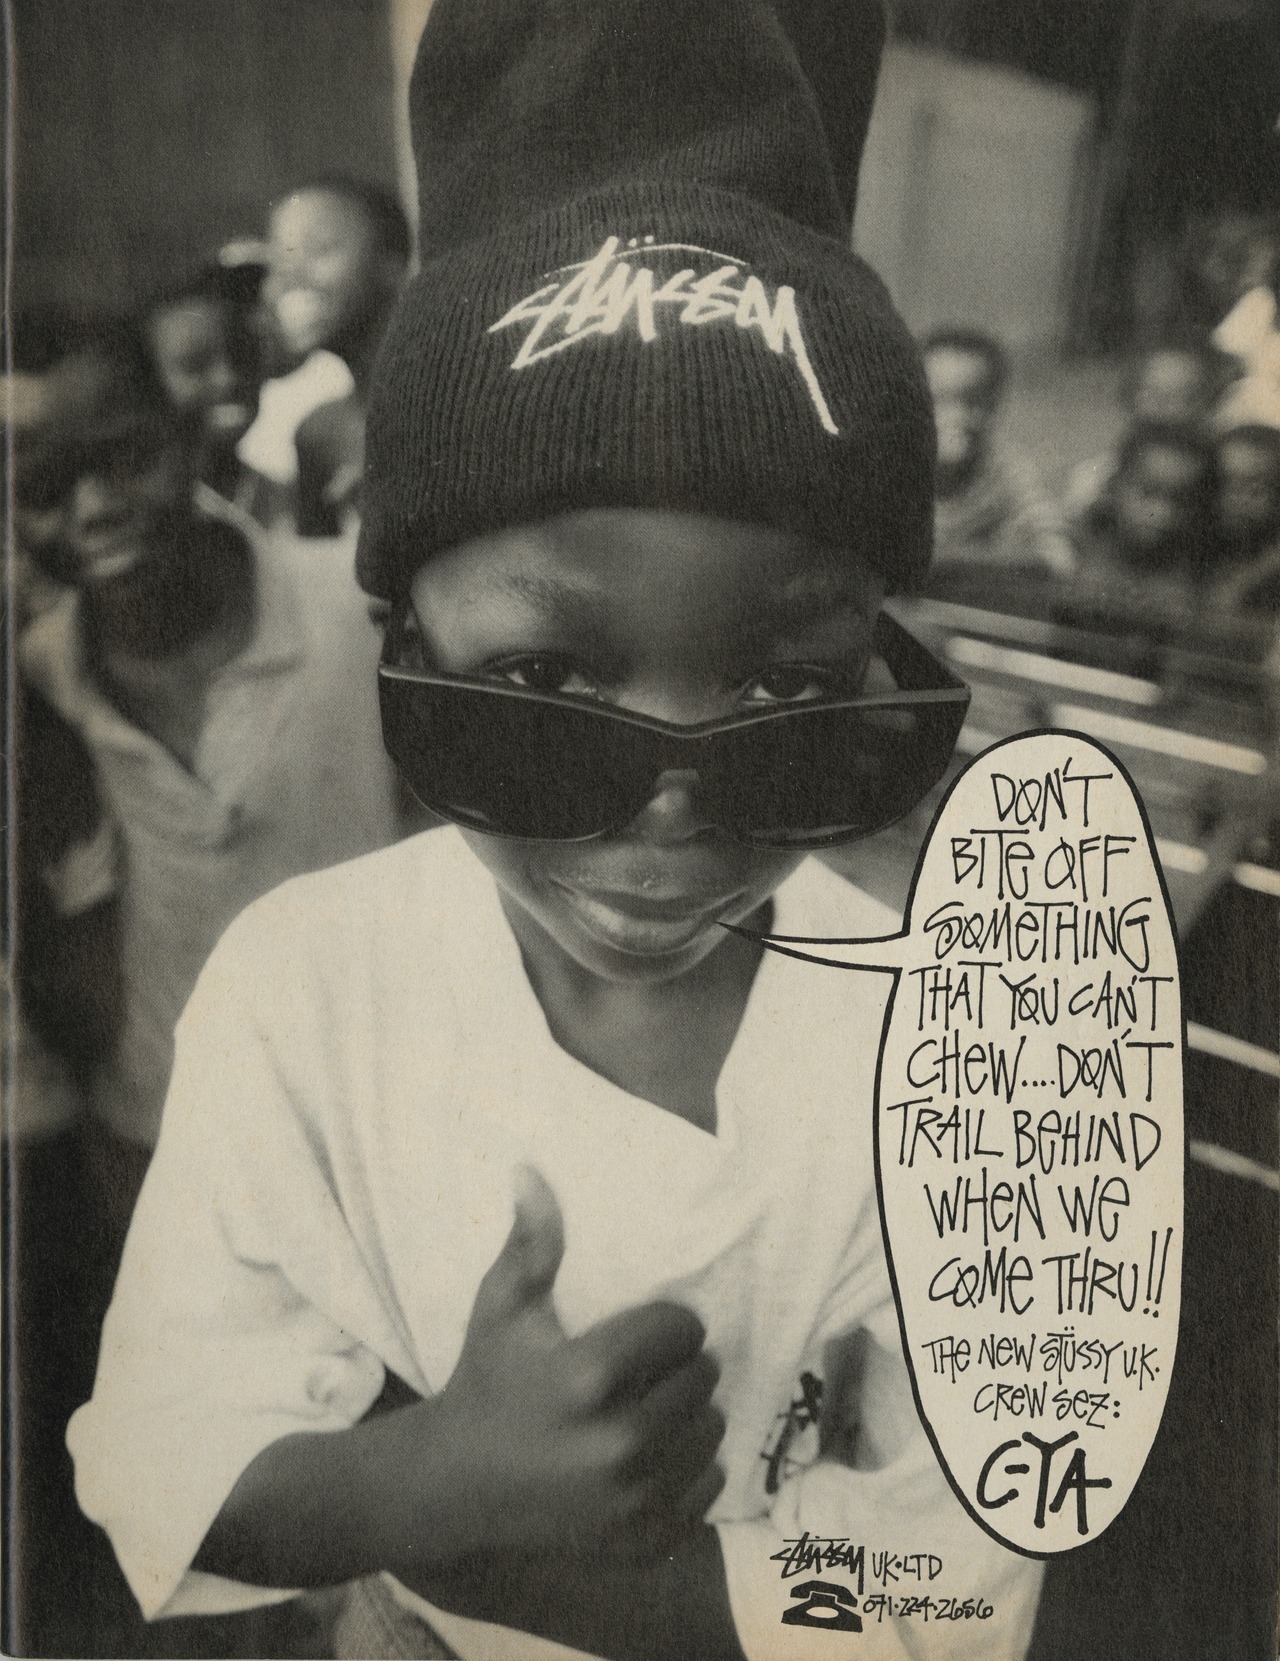 STÜSSY
DON'T
BITE OFF
SOMETHING
THAT YOU CAN'T
CHEW....DON'T
TRAIL BEHIND
WHEN WE
COME THRU!!
THE NEW STÜSSY U.K.
CREW SEZ:
C-YA
STÜSSY UK•LTD
071•224•2656